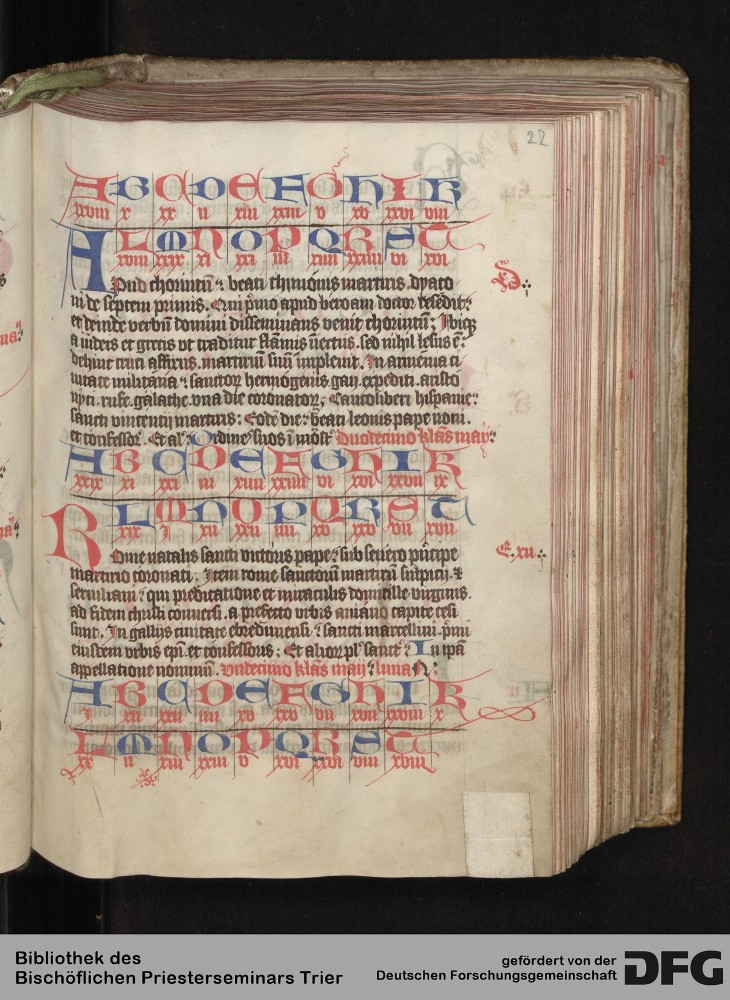 22
A B C D E F G h I K
xxviii x xx ii xiii xxiiii v xv xxvi viii
L M N O P Q R S T
xviii xxix xi xxi iii xiiii xxiiii vi xvi
APud chorintū ⁊ beati thimonis martiris. dyaco
ni de septem primis. Qui p̄mo apud beroam doctor resedit:
et deinde verbū domini disseminans venit chorintū; Ibiqꝫ
a iudeis et grecis ut traditur flāmis iniectus. sed nihil lesus ē:
dehinc cruci affixus. martiriū suū impleuit. In armenia ci
uitate militana ⁊ sanctoꝝ hermogenis. gaij. expediti. aristo
nyci. rufi. galathe. vna die coronatoꝝ; Caucoliberi hispanie:
sancti vincentij martiris; Eodē die: beati leonis pape noni.
et confessoꝝ. Et al': Ordine suos ī mōstꝝ duodecimo kl̄as maij:
A B C D E F G h I K
xxix xi xxi iii xiiii xxiiii vi xvi xxvii ix
L M N O P Q R S T
xix i xii xxii iiii xv xxv vii xvii
ROme natalis sancti victoris pape: sub seuero p̄ncipe
martirio coronati. Item rome sanctorū martirū sulpicij. ⁊
seruiliani: qui predicatione et miraculis domicille virginis.
ad fidem christi conuersi. a prefecto vrbis aniano capite cesi
sunt. In gallijs ciuitate ebredunensi: sancti marcellini. p̄mi
eiusdem vrbis ep̄i. et confessoris; Et alioꝝ pl' sanctꝝ: In ipā
appellatione nominū. vndecimo kl̄as maij: luna N:
A B C D E F G h I K
i xii xxii iiii xv xxv vii xvii xxviii x
L M N O P Q R S T
xx ii xiii xxiii v xvi xxvi viii xviii
D.
E. xii.
Bibliothek des
Bischöflichen Priesterseminars Trier
gefördert von der
Deutschen Forschungsgemeinschaft
DFG